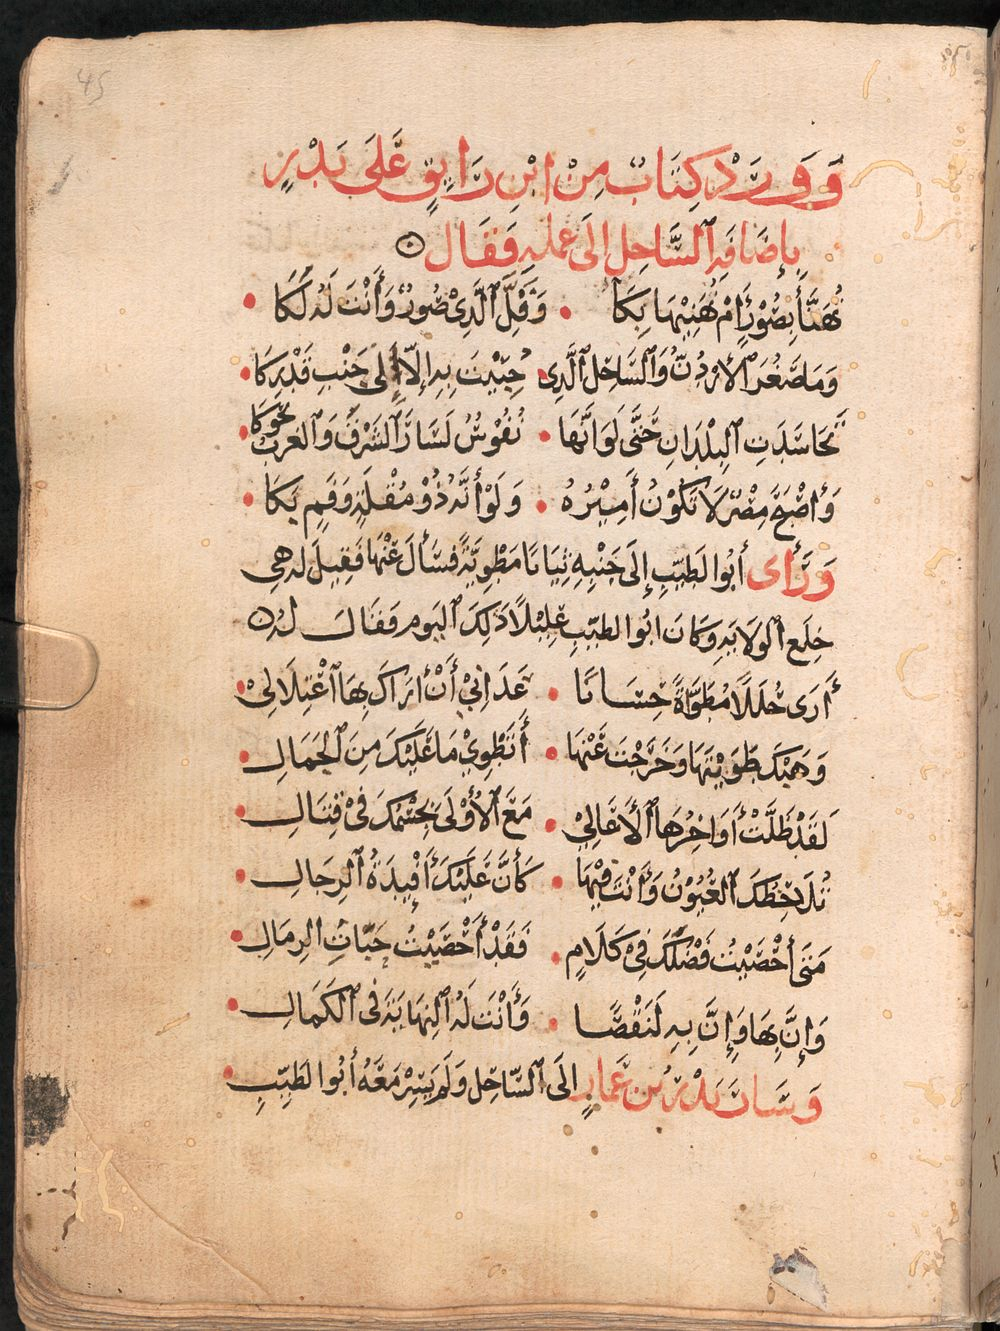 45
وَوَرَدَ كِتَابٌ مِنْ ابْنِ رَايِقٍ عَلَى بَدْرٍ
بِإِضَافَةِ السَّاحِلِ إِلَى عَمَلِهِ فَقَالَ
تُهَنَّأُ بِصُوْرٍ أَمْ نُهَنِيْهَا بِكَا • وَقَلَّ الَّذِيْ صُورٌ وَأَنْتَ لَهُ لَكَا •
وَمَا صَغُرَ الْأُرْدُنُّ وَالسَّاحِلُ الَّذِي • حُبِيْتَ بِهِ إِلَّا إِلَى جَنْبِ قَدْرِكَا •
تَحَاسَدَتِ الْبُلْدَانِ حَتَّى لَوَ انَّهَا • نُفُوسٌ لَسَارَ الشَرْقُ وَالْغَرْبُ نَحْوَكَا •
وَأَصْبَحَ مِصْرٌ لَا تَكُوْنُ أَمِيْرُهُ • وَلَوْ أَنَّهُ ذُوْ مُقْلَةٍ وَفَمٍ بَكَا •
وَرَأَى أَبُوا الطَيِّبِ إِلَى جَنْبِهِ ثِيَابًا مَطْوِيَّةً فَسَأَلَ عَنْهَا فَقِيلَ لَهُ هِي
خِلَع الْوِلَايَةِ وَكَانَ ابُوا الطَيّبِ عَلِيْلًا ذَلِكَ الْيَوْم فَقَالَ لَهُ
أَرَى حُلَلًا مُطَوَّاةً حِسَانًا • عَدَانِيْ أَنْ أَرَاكَ بِهَا اعْتِلَالِيْ •
وَهَبْكَ طَوَيْتَهَا وَخَرَجْتَ عَنْهَا • أَتَطْوِيْ مَا عَلَيْكَ مِنَ الْجَمَالِ •
لَقَدْ ظَلَّتْ أَوَاخِرُهَا الْأَعَالِيْ • مَعَ الْأُوْلَى بِجِسْمِكَ فِيْ قِتَالِ •
تُلَاحِظُكَ الْعُيُوْنُ وَأَنْتَ فِيْهَا • كَأَنَّ عَلَيْكَ أَفْيِدَةُ الرِجَالِ •
مَتَى أَحْصَيْتُ فَضْلَكَ فِيْ كَلَامٍ • فَقَدْ أَحْصَيْتُ حَبَّاتِ الرِمَالِ •
وَإِنَّ بِهَا وَإِنَّ بِهِ لَنَقْصًا • وَأَنْتَ لَهُ النِهَايَةَ فى الْكَمَالِ •
وَسَارَ بَدْرُ بْنُ عَمَارٍ إِلَى السَّاحِلِ وَلَم يَسِرْ مَعَهُ أَبُوا الطَيِّبِ •